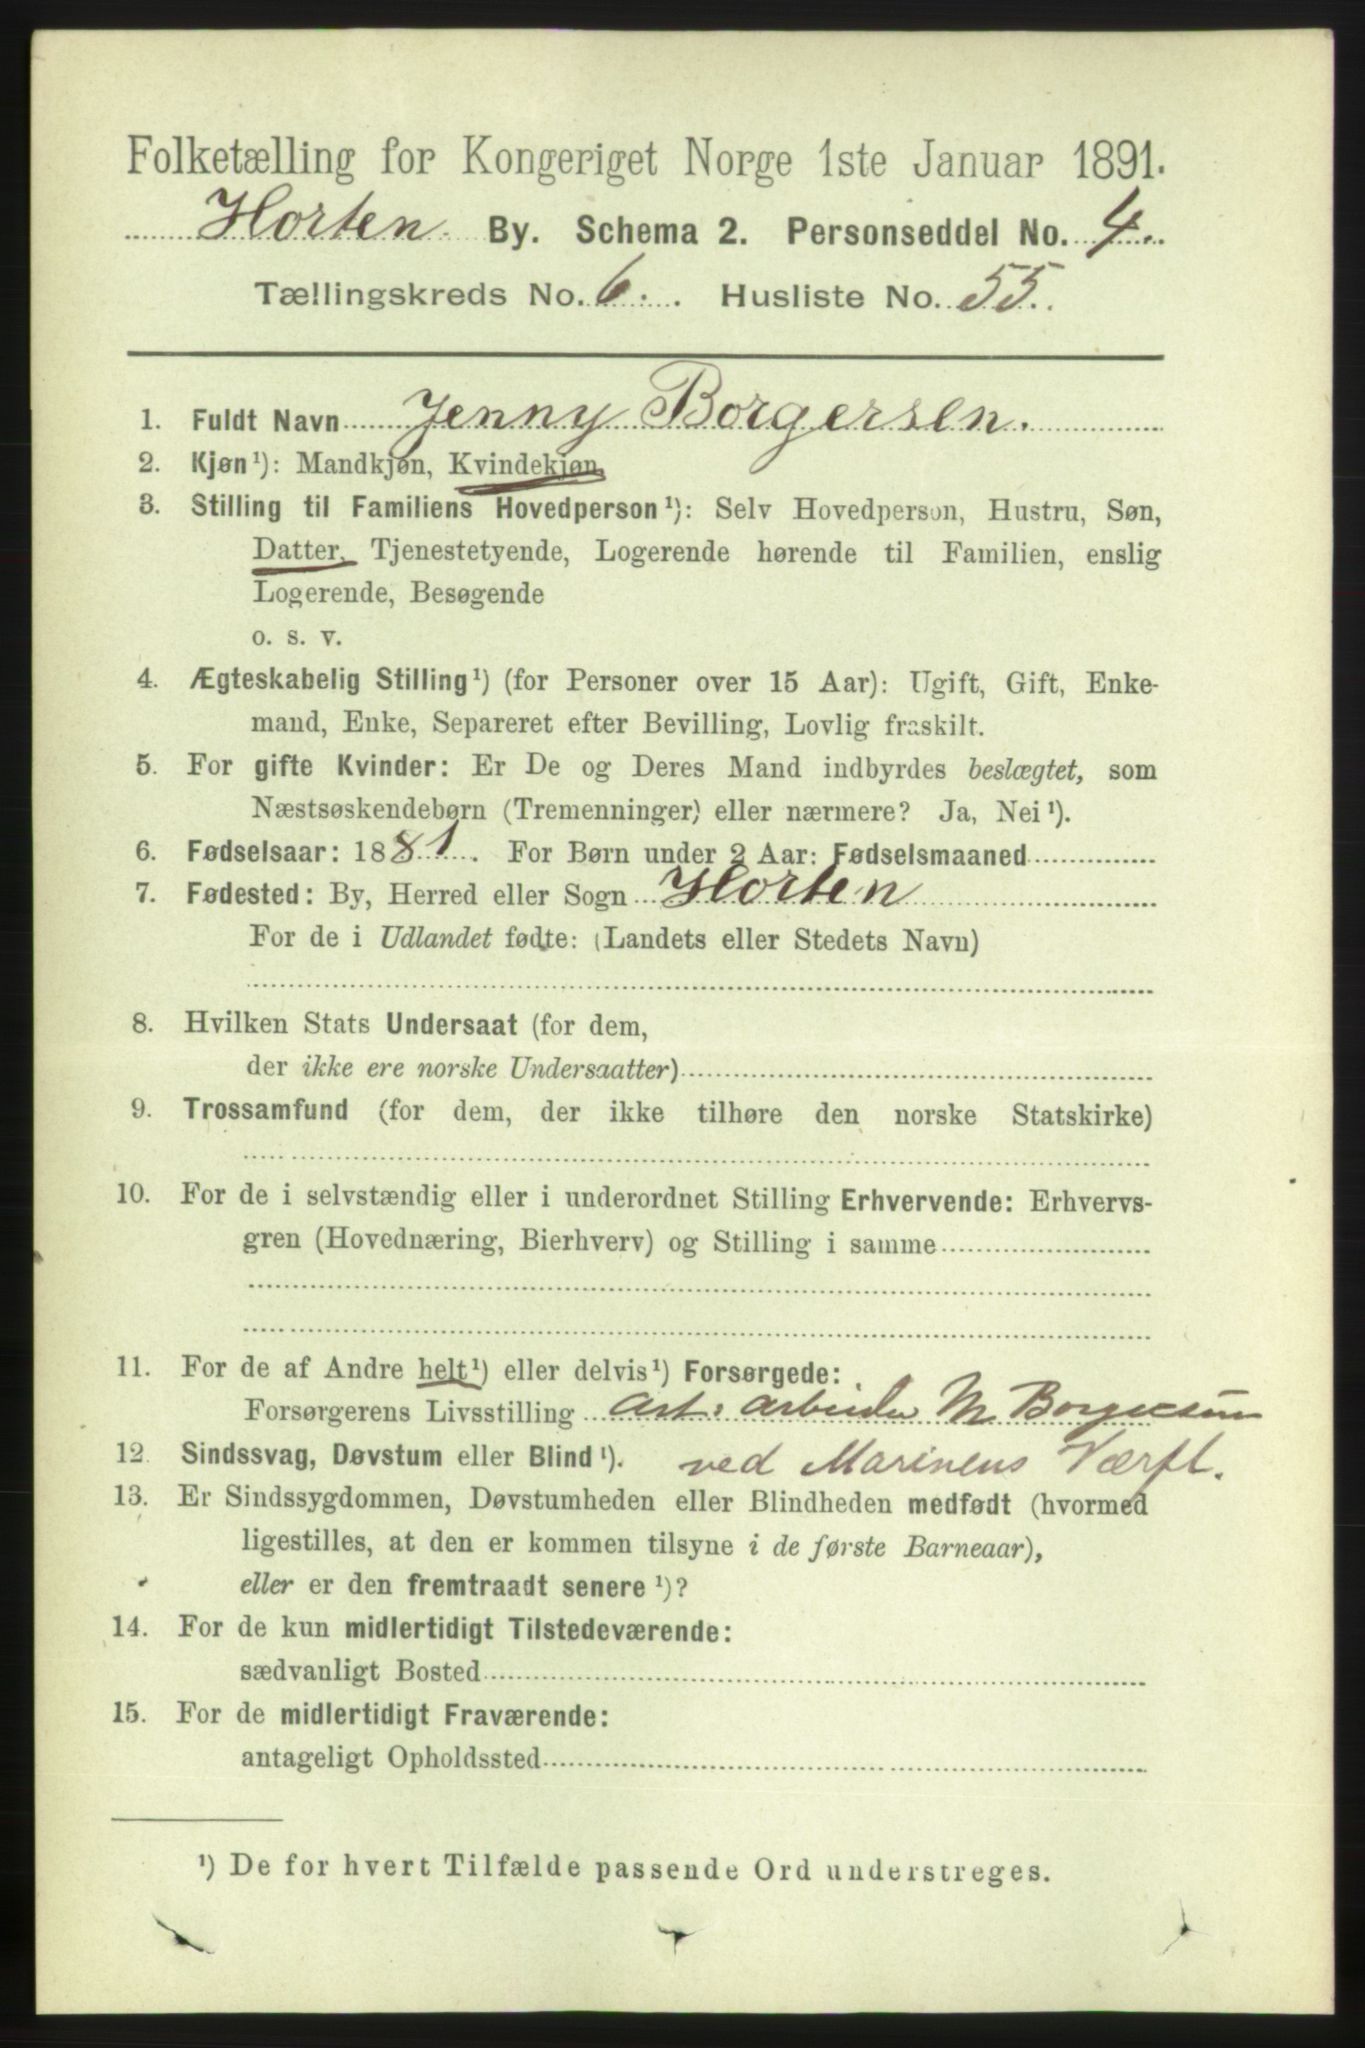 Folketælling for Kongeriget Norge 1ste Januar 1891.
Horten By. Schema 2. Personseddel No. 4.
Tællingskreds No. 6. Husliste No. 55.
1. Fuldt Navn Jenny Borgersen.
2. Kjøn¹): Mandkjøn, Kvindekjøn.
3. Stilling til Familiens Hovedperson¹): Selv Hovedperson, Hustru, Søn,
Datter, Tjenestetyende, Logerende hørende til Familien, enslig
Logerende, Besøgende
o. s. v.
4. Ægteskabelig Stilling¹) (for Personer over 15 Aar): Ugift, Gift, Enke-
mand, Enke, Separeret efter Bevilling, Lovlig fraskilt.
5. For gifte Kvinder: Er De og Deres Mand indbyrdes beslægtet, som
Næstsøskendebørn (Tremenninger) eller nærmere? Ja, Nei¹).
6. Fødselsaar: 1881. For Børn under 2 Aar: Fødselsmaaned
7. Fødested: By, Herred eller Sogn Horten
For de i Udlandet fødte: (Landets eller Stedets Navn)
8. Hvilken Stats Undersaat (for dem,
der ikke ere norske Undersaatter)
9. Trossamfund (for dem, der ikke tilhøre den norske Statskirke)
10. For de i selvstændig eller i underordnet Stilling Erhvervende: Erhvervs-
gren (Hovednæring, Bierhverv) og Stilling i samme
11. For de af Andre helt¹) eller delvis¹) Forsørgede:
Forsørgerens Livsstilling Art: arbeider M Borgersen
12. Sindssvag, Døvstum eller Blind¹). ved Marinens Værft.
13. Er Sindssygdommen, Døvstumheden eller Blindheden medfødt (hvormed
ligestilles, at den er kommen tilsyne i de første Barneaar),
eller er den fremtraadt senere¹)?
14. For de kun midlertidigt Tilstedeværende:
sædvanligt Bosted
15. For de midlertidigt Fraværende:
antageligt Opholdssted
¹) De for hvert Tilfælde passende Ord understreges.